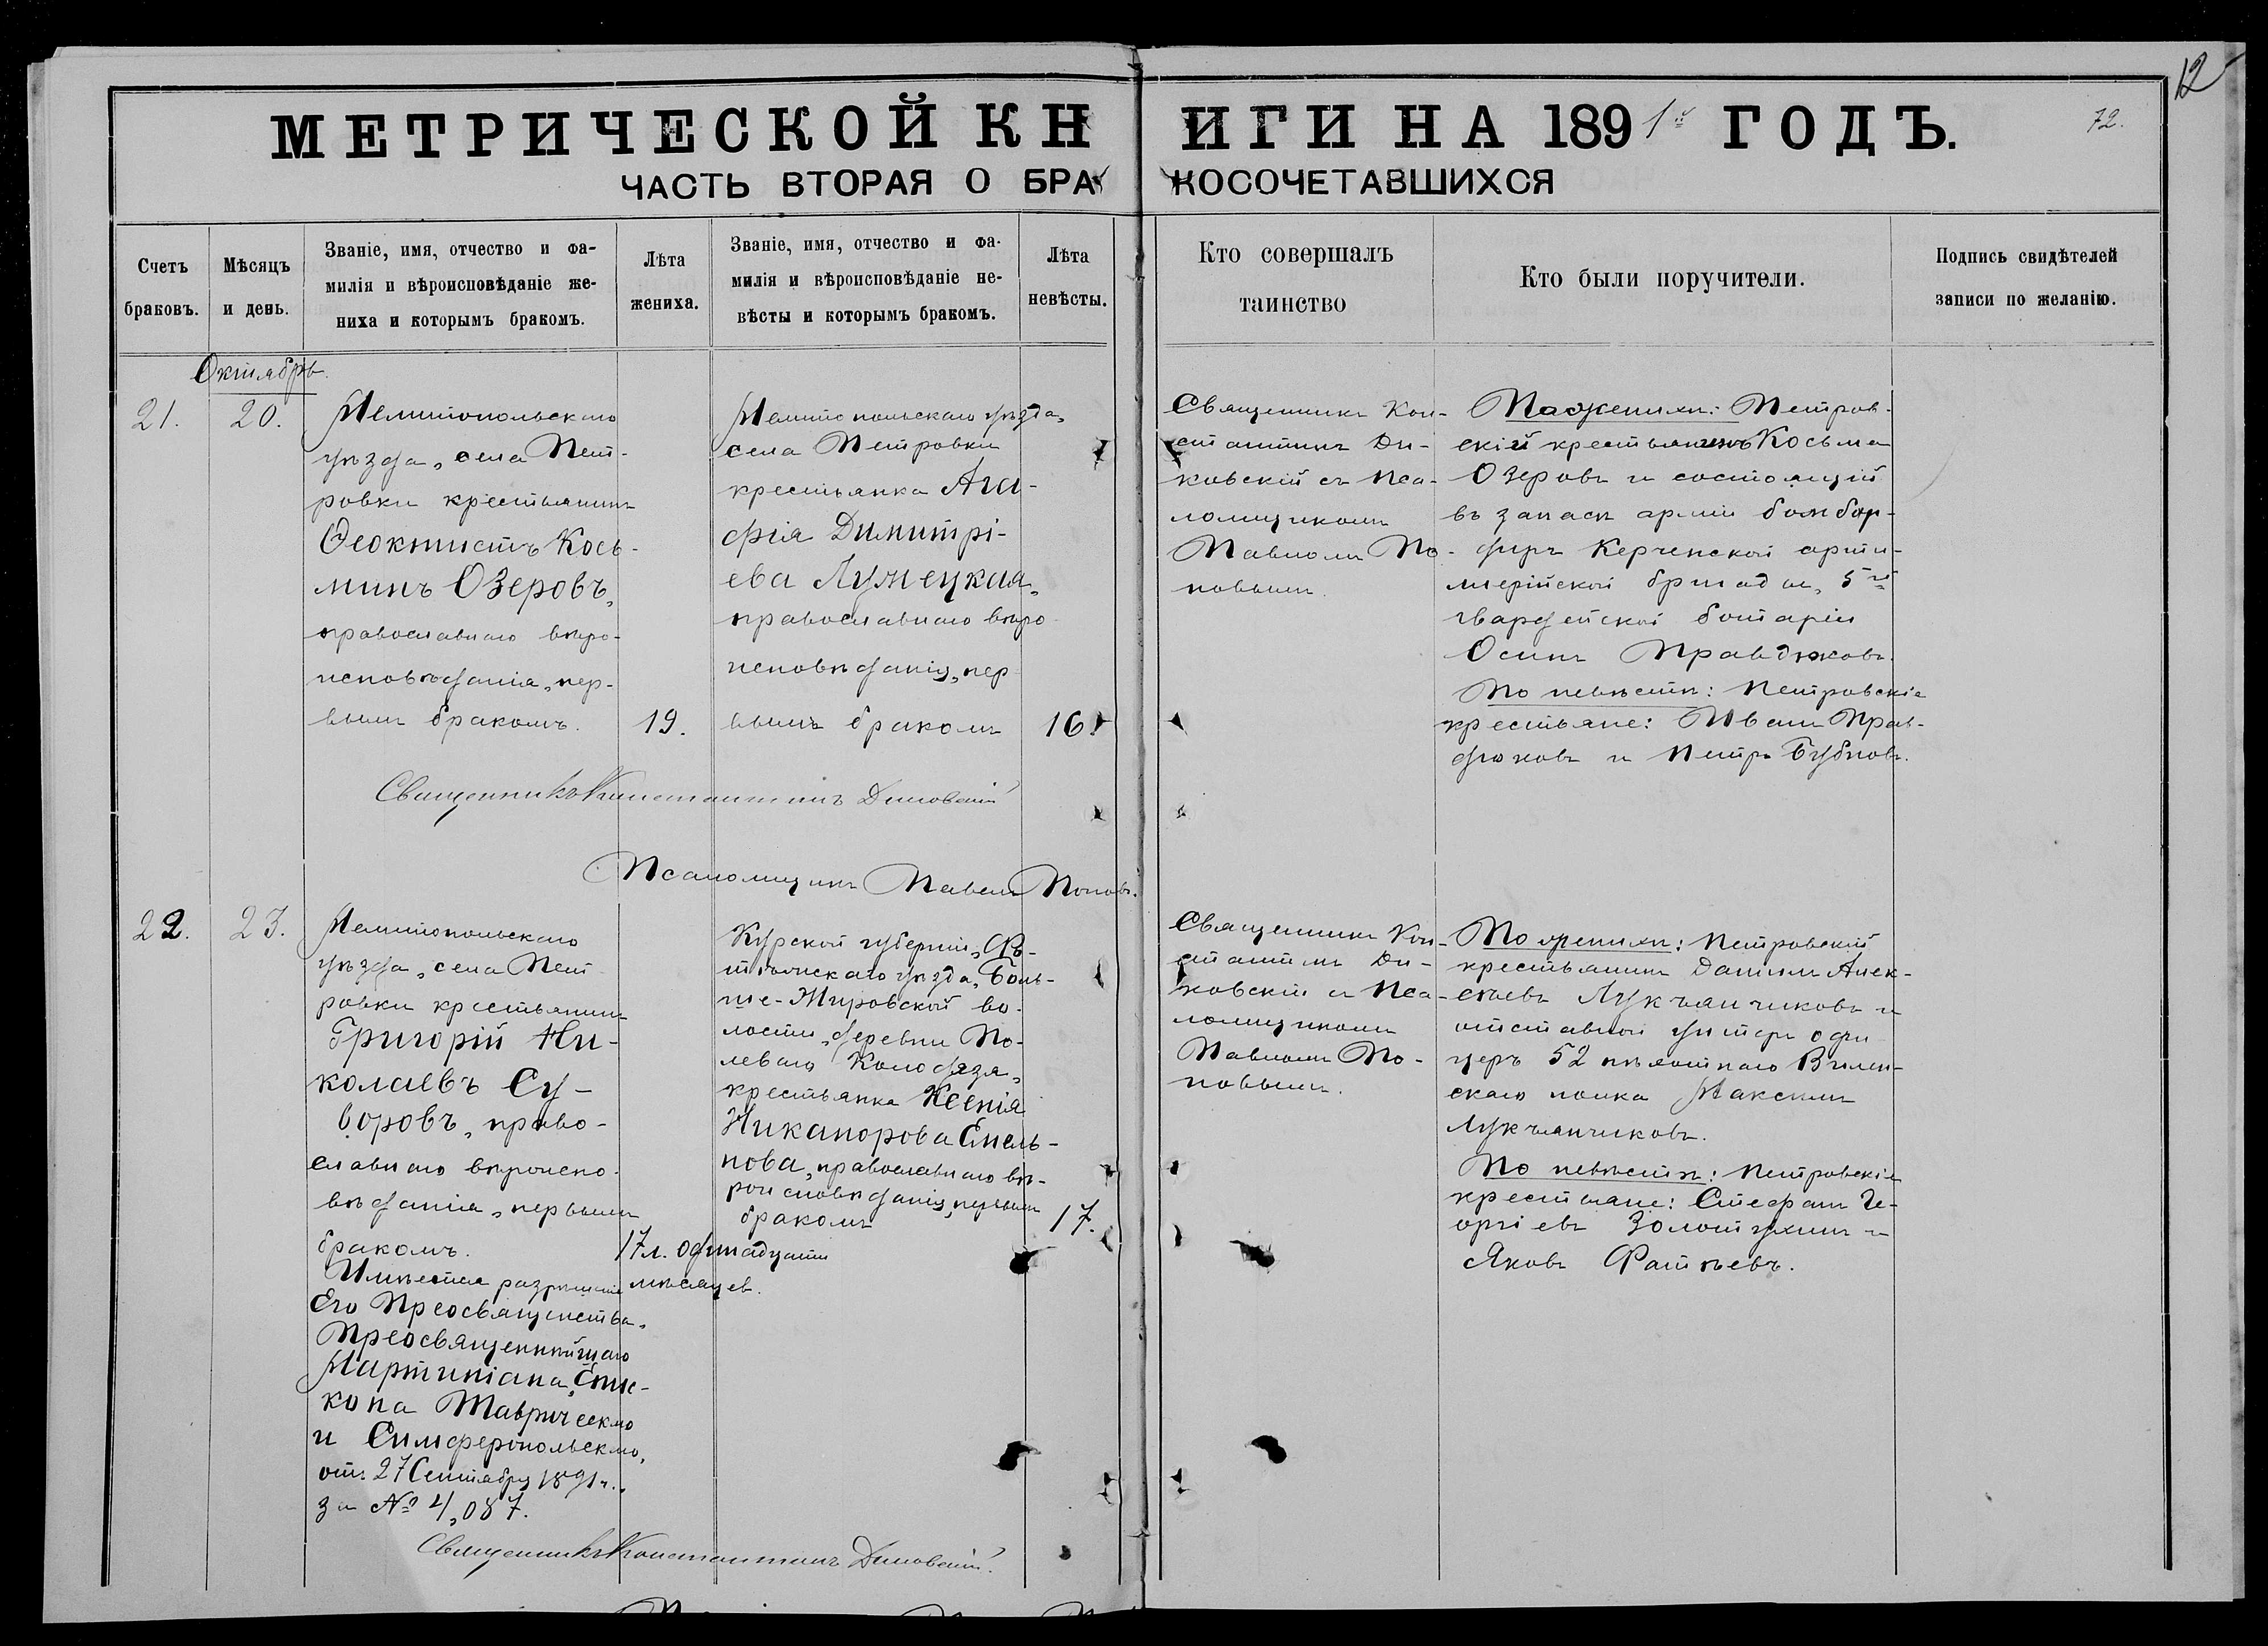 12
МЕТРИЧЕСКОЙ КНИГИ НА 1891й ГОДЪ.
72.
ЧАСТЬ ВТОРАЯ О БРАКОСОЧЕТАВШИХСЯ
Счетъ
браковъ.
Мѣсяцъ
и день.
Званіе, имя, отчество и фа-
милія и вѣроисповѣданіе же-
ниха и которымъ бракомъ.
Лѣта
жениха.
Званіе, имя, отчество и фа-
милія и вѣроисповѣданіе не-
вѣсты и которымъ бракомъ.
Лѣта
невѣсты.
Кто совершалъ
таинство
Кто были поручители.
Подпись свидѣтелей
записи по желанію.
Октябрь.
21.
20.
Мелитопольскаго
уѣзда, села Пет-
ровки крестьянинъ
Ѳеоктистъ Кось-
минъ Озеровъ,
православнаго вѣро-
исповѣданія, пер-
вымъ бракомъ.
19.
Мелитопольскаго уѣзда,
села Петровки
крестьянка Ага-
фія Димитрі-
ева Лужецкая,
православнаго вѣро-
исповѣданія, пер-
вымъ бракомъ
16.
Священникъ Кон-
стантинъ Ди-
ковскій съ пса-
ломщикомъ
Павломъ По-
повымъ.
По женихѣ: Петров-
скій крестьянинъ Косьма
Озеровъ и состоящій
въ запасѣ арміи бомбар-
диръ Керченской арти-
лерійской бригады, 5й
гвардейской батареи
Осипъ Правдюковъ.
По невѣстѣ: Петровскіе
крестьяне: Иванъ Прав-
дюковъ и Петръ Бубновъ.
Священникъ Константинъ Диковскій
Псаломщикъ Павелъ Поповъ.
22.
23.
Мелитопольскаго
уѣзда, села Пет-
ровки крестьянинъ
Григорій Ни-
колаевъ Су-
воровъ, право-
славнаго вѣроиспо-
вѣданія, первымъ
бракомъ.
17 л. одинадцати
мѣсяцев.
Имѣется разрѣшеніе
Его Преосвященства,
Преосвященнѣйшаго
Мартиніана, Епис-
копа Таврическаго
и Симферопольскаго,
отъ 27 Сентября 1891 г.,
за № 4,087.
Курской губерніи, Фа-
тѣжскаго уѣзда, Боль-
ше-Жировской во-
лости, деревни По-
леваго Колодязя,
крестьянка Ксенія
Никанорова Емель-
нова, православнаго вѣ-
роисповѣданія, первымъ
бракомъ
17.
Священникъ Кон-
стантинъ Ди-
ковскій съ пса-
ломщикомъ
Павломъ По-
повымъ.
По женихѣ: Петровскій
крестьянинъ Даніилъ Алек-
сѣевъ Лукъянчиковъ и
отставной унтеръ офи-
церъ 52 пѣхотнаго Вилен-
скаго полка Максимъ
Лукъянчиковъ.
По невѣстѣ: Петровскіе
крестьяне: Стефанъ Ге-
оргіевъ Золотухинъ и
Яковъ Фатѣевъ.
Священникъ Константинъ Диковскій.